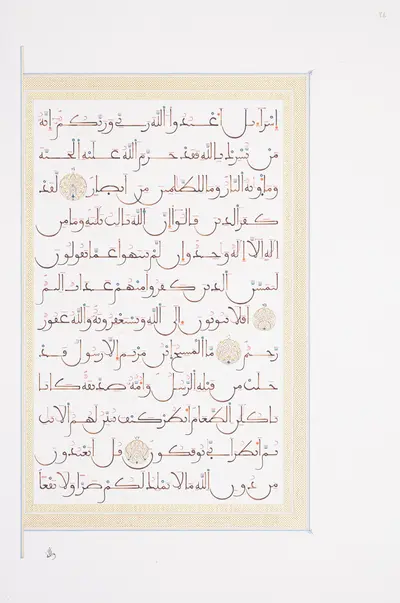 إِسْرَآءِيلَ ٱعْبُدُوا۟ ٱللَّهَ رَبِّى وَرَبَّكُمْ إِنَّهُ
مَنْ يُشْرِكْ بِٱللَّهِ فَقَدْ حَرَّمَ ٱللَّهُ عَلَيْهِ ٱلْجَنَّةَ
وَمَأْوَىٰهُ ٱلنَّارُ وَمَا لِلظَّٰلِمِينَ مِنْ أَنصَارٍ لَقَدْ
كَفَرَ ٱلَّذِينَ قَالُوٓا۟ إِنَّ ٱللَّهَ ثَالِثُ ثَلَٰثَةٍ وَمَا مِنْ
إِلَٰهٍ إِلَّآ إِلَٰهٌ وَٰحِدٌ وَإِن لَّمْ يَنتَهُوا۟ عَمَّا يَقُولُونَ
لَيَمَسَّنَّ ٱلَّذِينَ كَفَرُوا۟ مِنْهُمْ عَذَابٌ أَلِيمٌ
أَفَلَا يَتُوبُونَ إِلَى ٱللَّهِ وَيَسْتَغْفِرُونَهُ وَٱللَّهُ غَفُورٌ
رَّحِيمٌ مَّا ٱلْمَسِيحُ ٱبْنُ مَرْيَمَ إِلَّا رَسُولٌ قَدْ
خَلَتْ مِن قَبْلِهِ ٱلرُّسُلُ وَأُمُّهُ صِدِّيقَةٌ كَانَا
يَأْكُلَٰنِ ٱلطَّعَامَ ٱنظُرْ كَيْفَ نُبَيِّنُ لَهُمُ ٱلْأَيَٰتِ
ثُمَّ ٱنظُرْ أَنَّىٰ يُوفَكُونَ قُلْ أَتَعْبُدُونَ
مِن دُونِ ٱللَّهِ مَا لَا يَمْلِكُ لَكُمْ ضَرًّا وَلَا نَفْعًا
والله